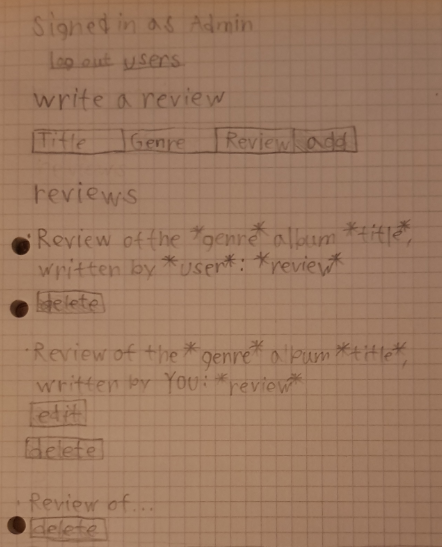 Signed in as Admin
Log out users
write a review
Title Genre Review add
reviews
· Review of the *genre* album *title*,
written by *user*: *review*
delete
· Review of the *genre* album *title*,
written by YOU: *review*
edit
delete
· Review of...
delete